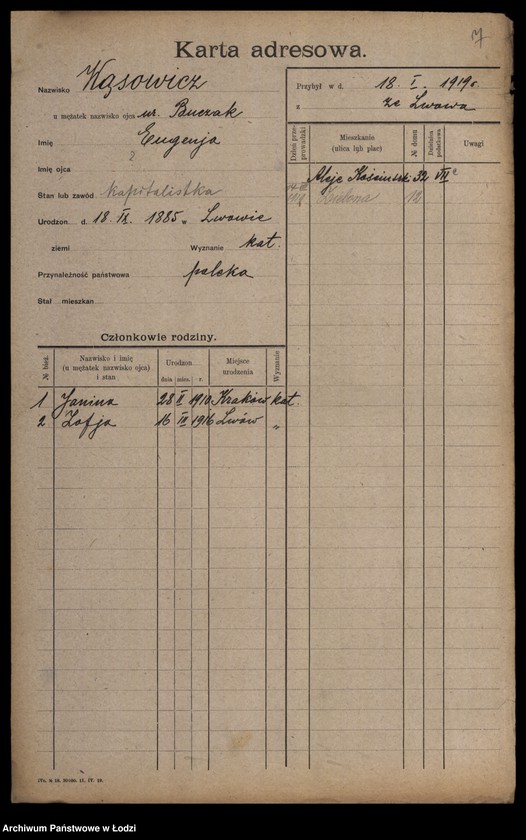 Karta adresowa.
Nazwisko Kąsowicz
u mężatek nazwisko ojca ur. Buczak
Imię Eugenja
Imię ojca
Stan lub zawód kapitalistka
Urodzon. d. 18. IX. 1885 w Lwowie
ziemi Wyznanie kat.
Przynależność państwowa polska
Stał. mieszkan.
Przybył w d. 18. I. 1919 r.
z ze Lwowa
Dzień przeprowadzki
Mieszkanie
(ulica lub plac)
№ domu
Dzielnica podatkowa
Uwagi
Aleje Kościuszki 32 VII c
Zielona 18
Członkowie rodziny.
№ bież.
Nazwisko i imię
(u mężatek nazwisko ojca)
i stan
Urodzon.
dnia mies. r.
Miejsce
urodzenia
Wyznanie
1 Janina 28 II 1910 Kraków kat.
2 Zofja 16 1916 Lwów "
Archiwum Państwowe w Łodzi